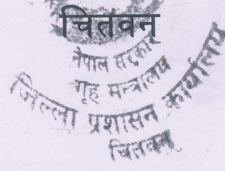 चितवन
नेपाल सरकार
गृह मन्त्रालय
जिल्ला प्रशासन कार्यालय
चितवन